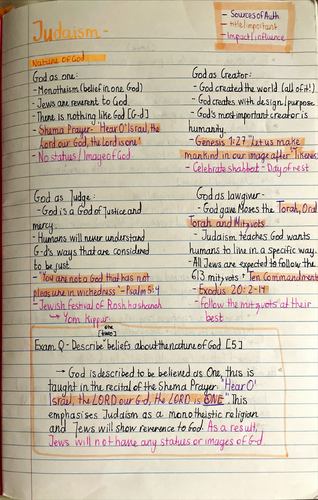 Judaism-
- Sources of Auth
- title/important
- Impact/influence
Nature of God
God as one:
- Monotheism (belief in one God)
- Jews are reverent to God
- There is nothing like God [G-d]
- Shema Prayer- "Hear O'Israel, the
Lord our God, the lord is one"
- No status / Image of God
God as Creator:
- God created the world (all of it!)
- God creates with design/purpose
- God's most important creator is
humanity.
- Genesis 1:27 "let us make
mankind in our image after likeness
- Celebrate shabbat - Day of rest
God as Judge:
- God is a God of Justice and
mercy.
- Humans will never understand
G-d's ways that are considered
to be just.
- "You are not a God that has not
pleasure in wickedness" - Psalm 5:4
- Jewish festival of Rosh hashanah
→ Yom Kippur
God as lawgiver-
- God gave Moses the Torah, Oral
Torah and Mitzvots
- Judaism teaches God wants
humans to live in a specific way.
- All Jews are expected to follow the
613 mitzvots + Ten Commandments
- Exodus 20:2-14
- follow the mitzvots at their
best
one
[two]
Exam Q - Describe beliefs about the nature of God [5]
→ God is described to be believed as One, this is
taught in the recital of the Shema Prayer "Hear O'
Israel, the LORD our G-d, the LORD is ONE" This
emphasises Judaism as a monotheistic religion
and Jews will show reverence to God. As a result,
Jews will not have any statues or images of G-d